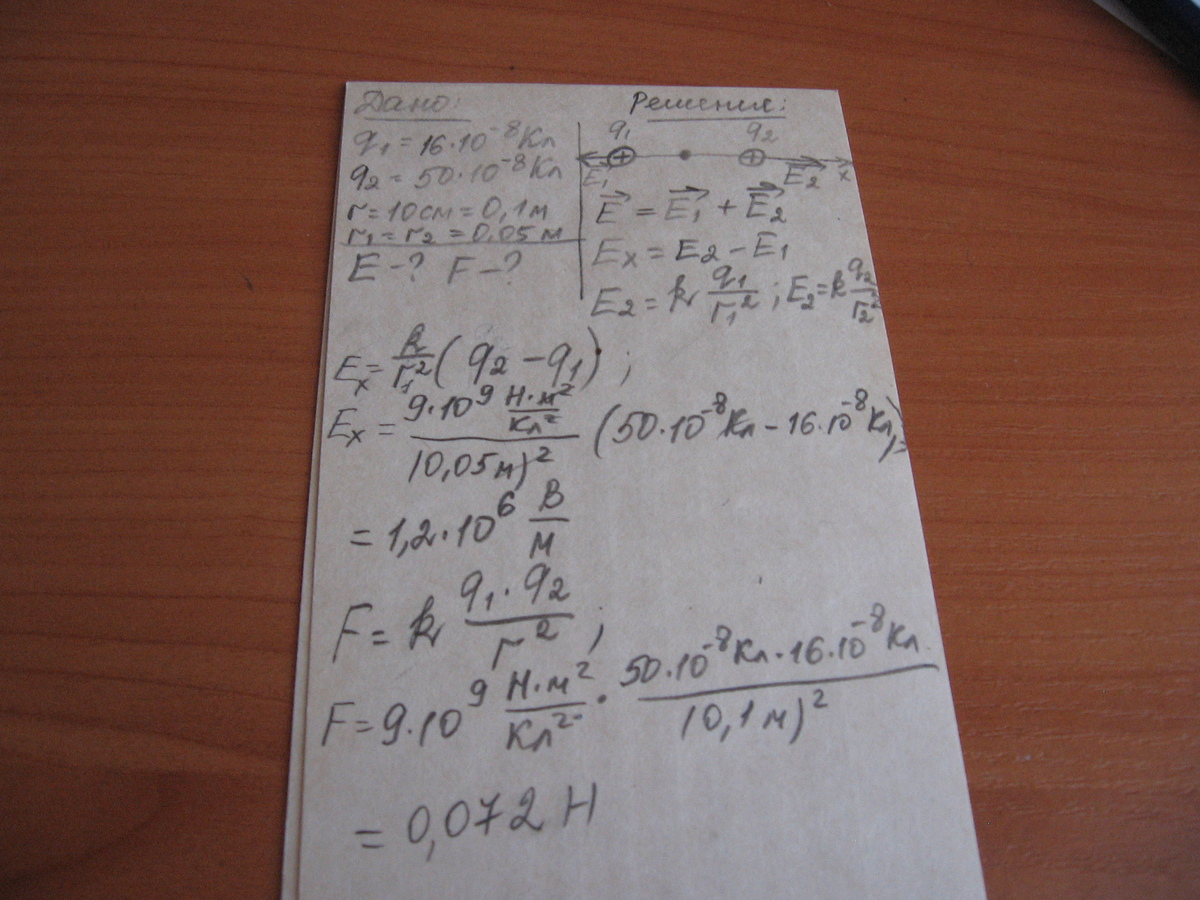 Дано: Решение:
q₁ = 16·10⁻⁸ Кл
q₂ = 50·10⁻⁸ Кл
r = 10 см = 0,1 м
r₁ = r₂ = 0,05 м
E - ? F - ?
q₁ q₂
E₁ E₂ x
E⃗ = E⃗₁ + E⃗₂
Eₓ = E₂ - E₁
E₂ = k q₁/r₁² ; E₂ = k q₂/r₂²
Eₓ = k/r₁² (q₂ - q₁) ;
Eₓ = 9·10⁹ Н·м²/Кл² / (0,05 м)² (50·10⁻⁸ Кл - 16·10⁻⁸ Кл) =
= 1,2·10⁶ В/м
F = k q₁·q₂/r² ;
F = 9·10⁹ Н·м²/Кл² · 50·10⁻⁸ Кл · 16·10⁻⁸ Кл / (0,1 м)²
= 0,072 Н